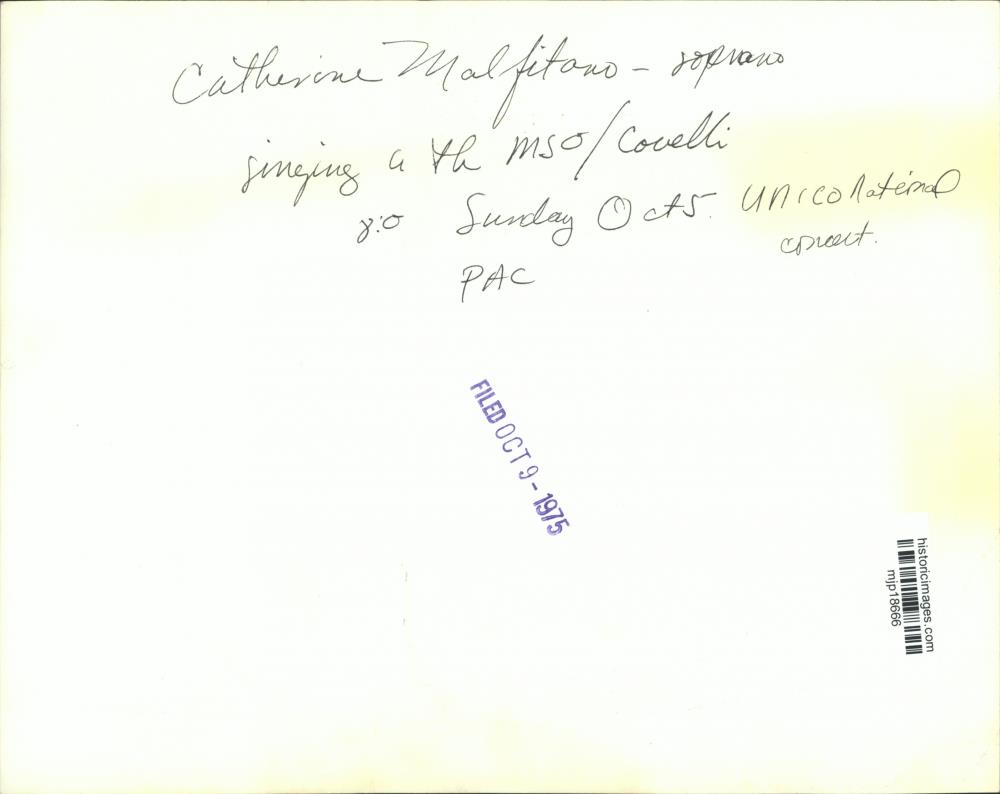 Catherine Malfitano - soprano
singing a th MSO/Covelli
8:0 Sunday Oct 5. UNICO National
concert.
PAC
FILED OCT 9 - 1975
historicimages.com
mjp18666